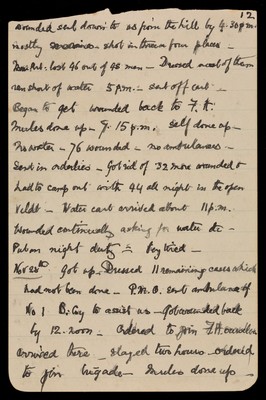 12
wounded sent down to us from the hill by 4.30 p.m.
mostly shot in three or four places -
lost 46 out of 48 men - Dressed most of them
ran short of water 5 p.m. - sent off cart -
Began to get wounded back to F.H.
Mules done up - 7.15 p.m. self done up -
No water - 76 wounded - no ambulances -
Sent in orderlies - Got rid of 32 more wounded &
had to camp out with 44 all night in the open
Veldt - Water cart arrived about 11 p.m.
Wounded continually asking for water &c -
Put on night duty = Very tired -
Nov got up. Dressed 11 remaining cases which
had not been done - P.M.O. sent ambulance of
No 1 B. Coy to assist us - Got wounded back
by 12. noon - Ordered to join F.H.
arrived there - stayed two hours - ordered
to join brigade - Mules done up -